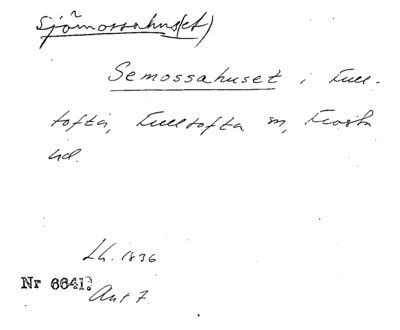 Sjömossahus(et)
Semossahuset i Full-
tofta, Fulltofta sn, Frosta
hd.
Lh. 1836
Nr 6641:
Ant 7.